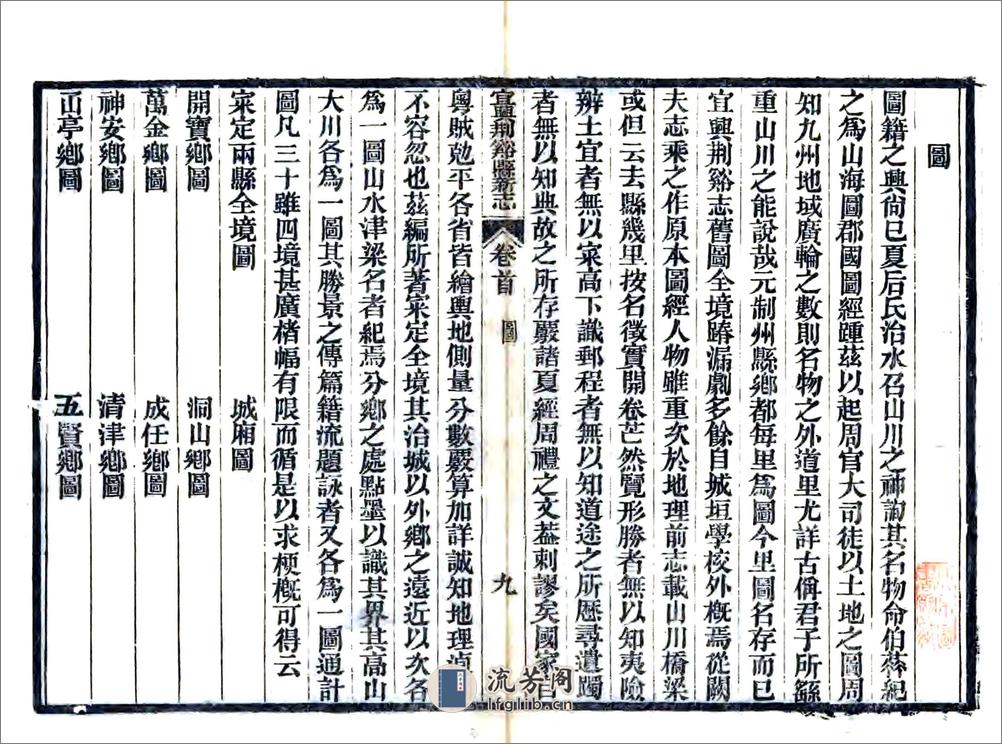 圖
圖籍之興尙已夏后氏治水召山川之神詢其名物命伯益紀
之爲山海圖郡國圖經踵茲以起周官大司徒以土地之圖周
知九州地域廣輪之數則名物之外道里尤詳古偁君子所繇
重山川之能說哉元制州縣鄉都每里爲圖今里圖名存而已
宜興荆谿志舊圖全境踳漏劇多餘自城垣學校外概焉從闕
夫志乘之作原本圖經人物雖重次於地理前志載山川橋梁
或但云去縣幾里按名徵實開卷芒然覽形勝者無以知夷險
辨土宜者無以寀高下識郵程者無以知道途之所歷尋遺躅
者無以知典故之所存覈諸夏經周禮之文葢剌謬矣國家
宜興荆谿縣新志 卷首 圖 九
粵賊勊平各省皆繪輿地側量分數覈算加詳誠知地理
不容忽也茲編所著寀定全境其治城以外鄉之遠近以次各
爲一圖山水津梁名者紀焉分鄉之處點墨以識其界其高山
大川各爲一圖其勝景之傳篇籍流題詠者又各爲一圖通計
圖凡三十雖四境甚廣楮幅有限而循是以求梗槪可得云
寀定兩縣全境圖 城廂圖
開寶鄉圖 洞山鄉圖
萬金鄉圖 成任鄉圖
神安鄉圖 清津鄉圖
山亭鄉圖 五賢鄉圖
流芳阁
lfglib.cn